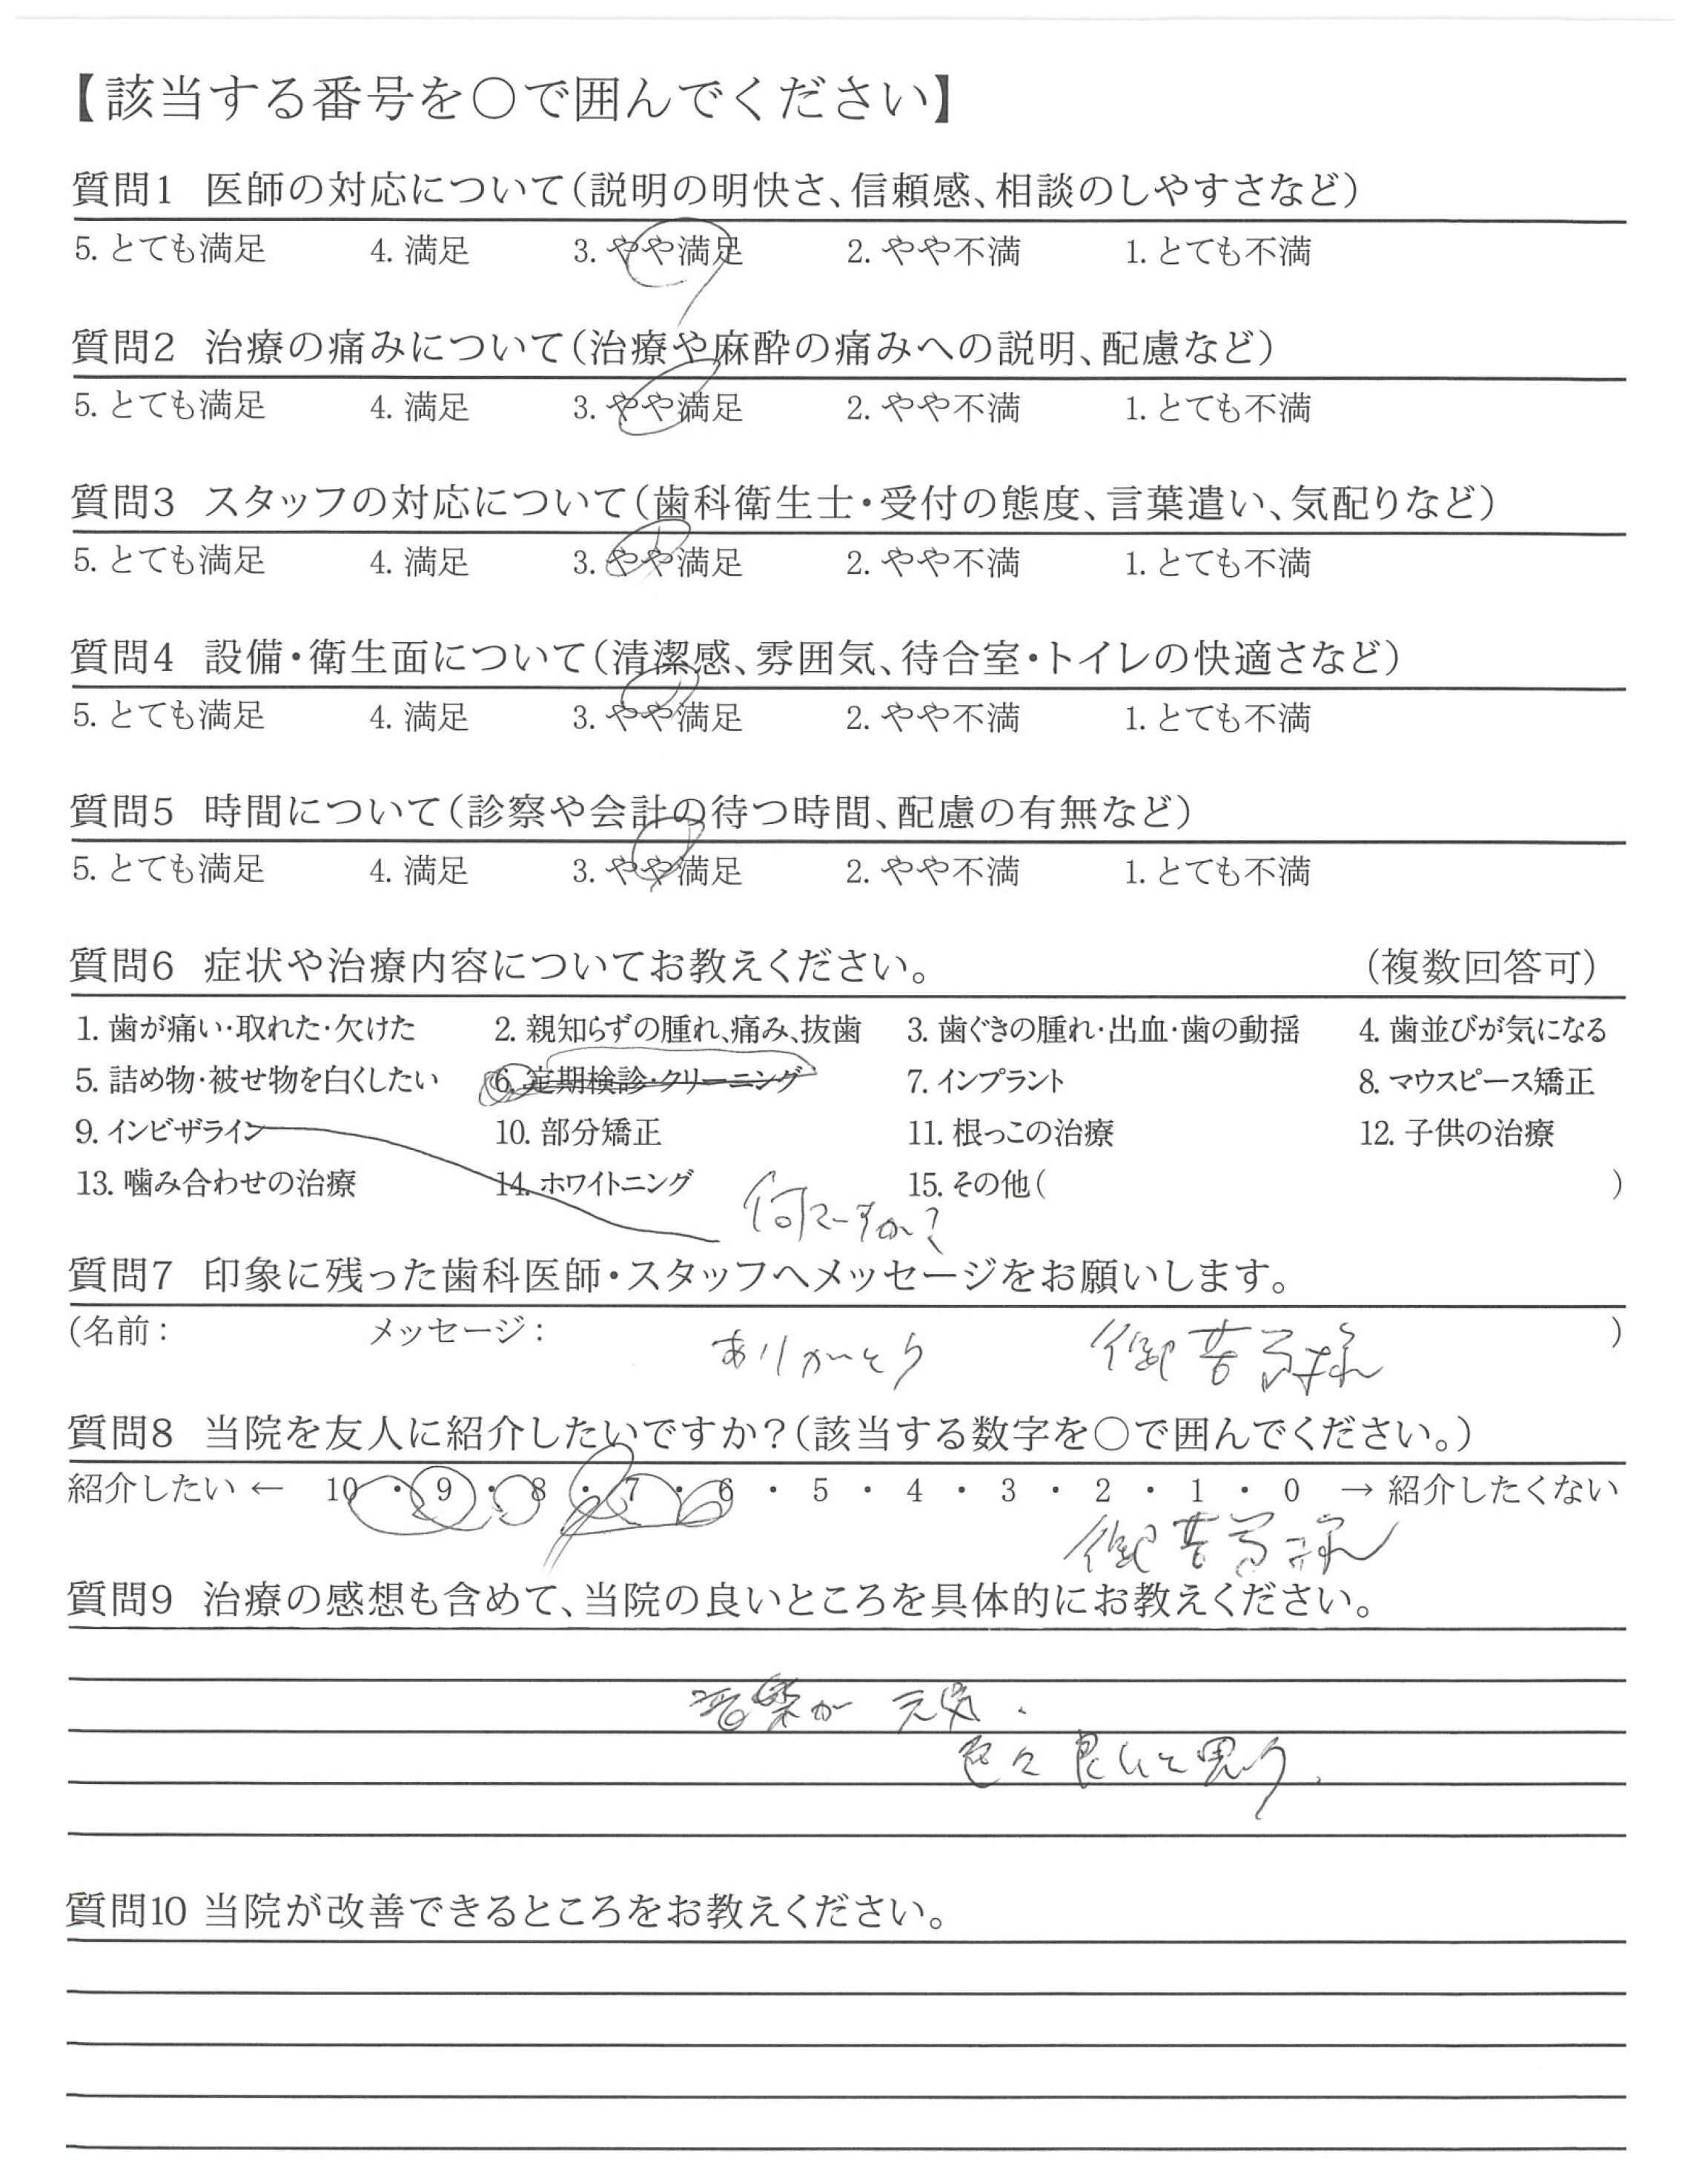 【該当する番号を○で囲んでください】
質問1 医師の対応について(説明の明快さ、信頼感、相談のしやすさなど)
5. とても満足 4. 満足 3. やや満足 2. やや不満 1. とても不満
質問2 治療の痛みについて(治療や麻酔の痛みへの説明、配慮など)
5. とても満足 4. 満足 3. やや満足 2. やや不満 1. とても不満
質問3 スタッフの対応について(歯科衛生士・受付の態度、言葉遣い、気配りなど)
5. とても満足 4. 満足 3. やや満足 2. やや不満 1. とても不満
質問4 設備・衛生面について(清潔感、雰囲気、待合室・トイレの快適さなど)
5. とても満足 4. 満足 3. やや満足 2. やや不満 1. とても不満
質問5 時間について(診察や会計の待つ時間、配慮の有無など)
5. とても満足 4. 満足 3. やや満足 2. やや不満 1. とても不満
質問6 症状や治療内容についてお教えください。 (複数回答可)
1. 歯が痛い・取れた・欠けた 2. 親知らずの腫れ、痛み、抜歯 3. 歯ぐきの腫れ・出血・歯の動揺 4. 歯並びが気になる
5. 詰め物・被せ物を白くしたい 6. 定期検診・クリーニング 7. インプラント 8. マウスピース矯正
9. インビザライン 10. 部分矯正 11. 根っこの治療 12. 子供の治療
13. 噛み合わせの治療 14. ホワイトニング 15. その他( )
何ですか?
質問7 印象に残った歯科医師・スタッフへメッセージをお願いします。
(名前: メッセージ: ありがとう 御苦労様 )
質問8 当院を友人に紹介したいですか?(該当する数字を○で囲んでください。)
紹介したい ← 10 ・ 9 ・ 8 ・ 7 ・ 6 ・ 5 ・ 4 ・ 3 ・ 2 ・ 1 ・ 0 → 紹介したくない
御苦労様
質問9 治療の感想も含めて、当院の良いところを具体的にお教えください。
音楽が 元気.
色々 良いと思う.
質問10 当院が改善できるところをお教えください。